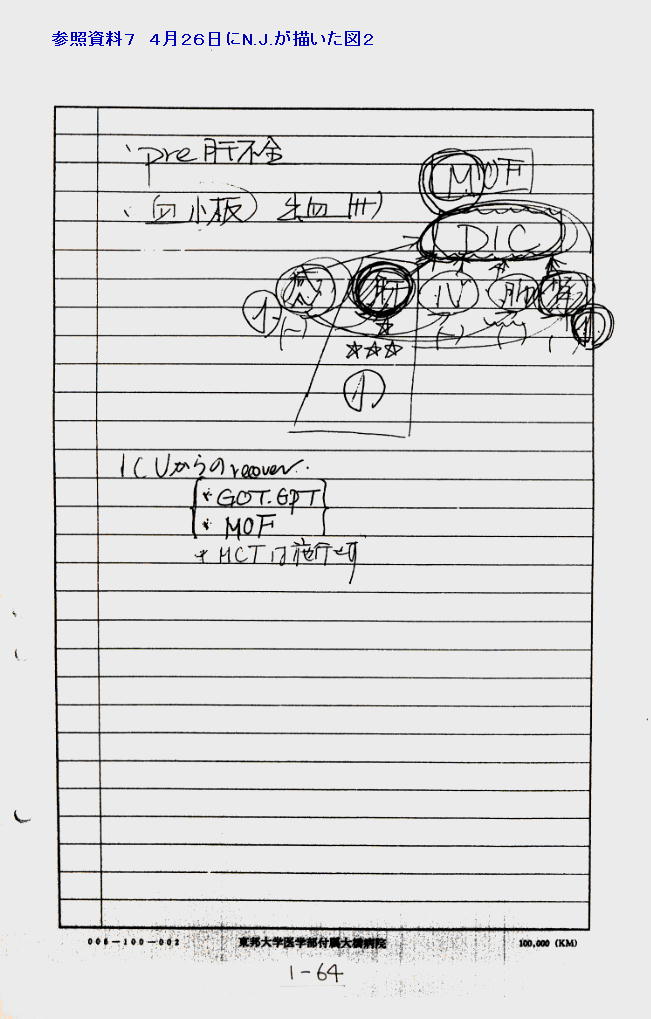 参照資料７　４月２６日にN.J.が描いた図２
・pre 肝不全
MOF
・血小板) 出血(卅)
DIC
感 肝 心 肺 腎
1 (-) ☆ (-) ( ) ( ) 1
☆☆☆
1
ICUからのrecover.
* GOT.GPT
* MOF
* MCTは施行せず
006－100－002 東邦大学医学部付属大橋病院 100,000 (KM)
1-64